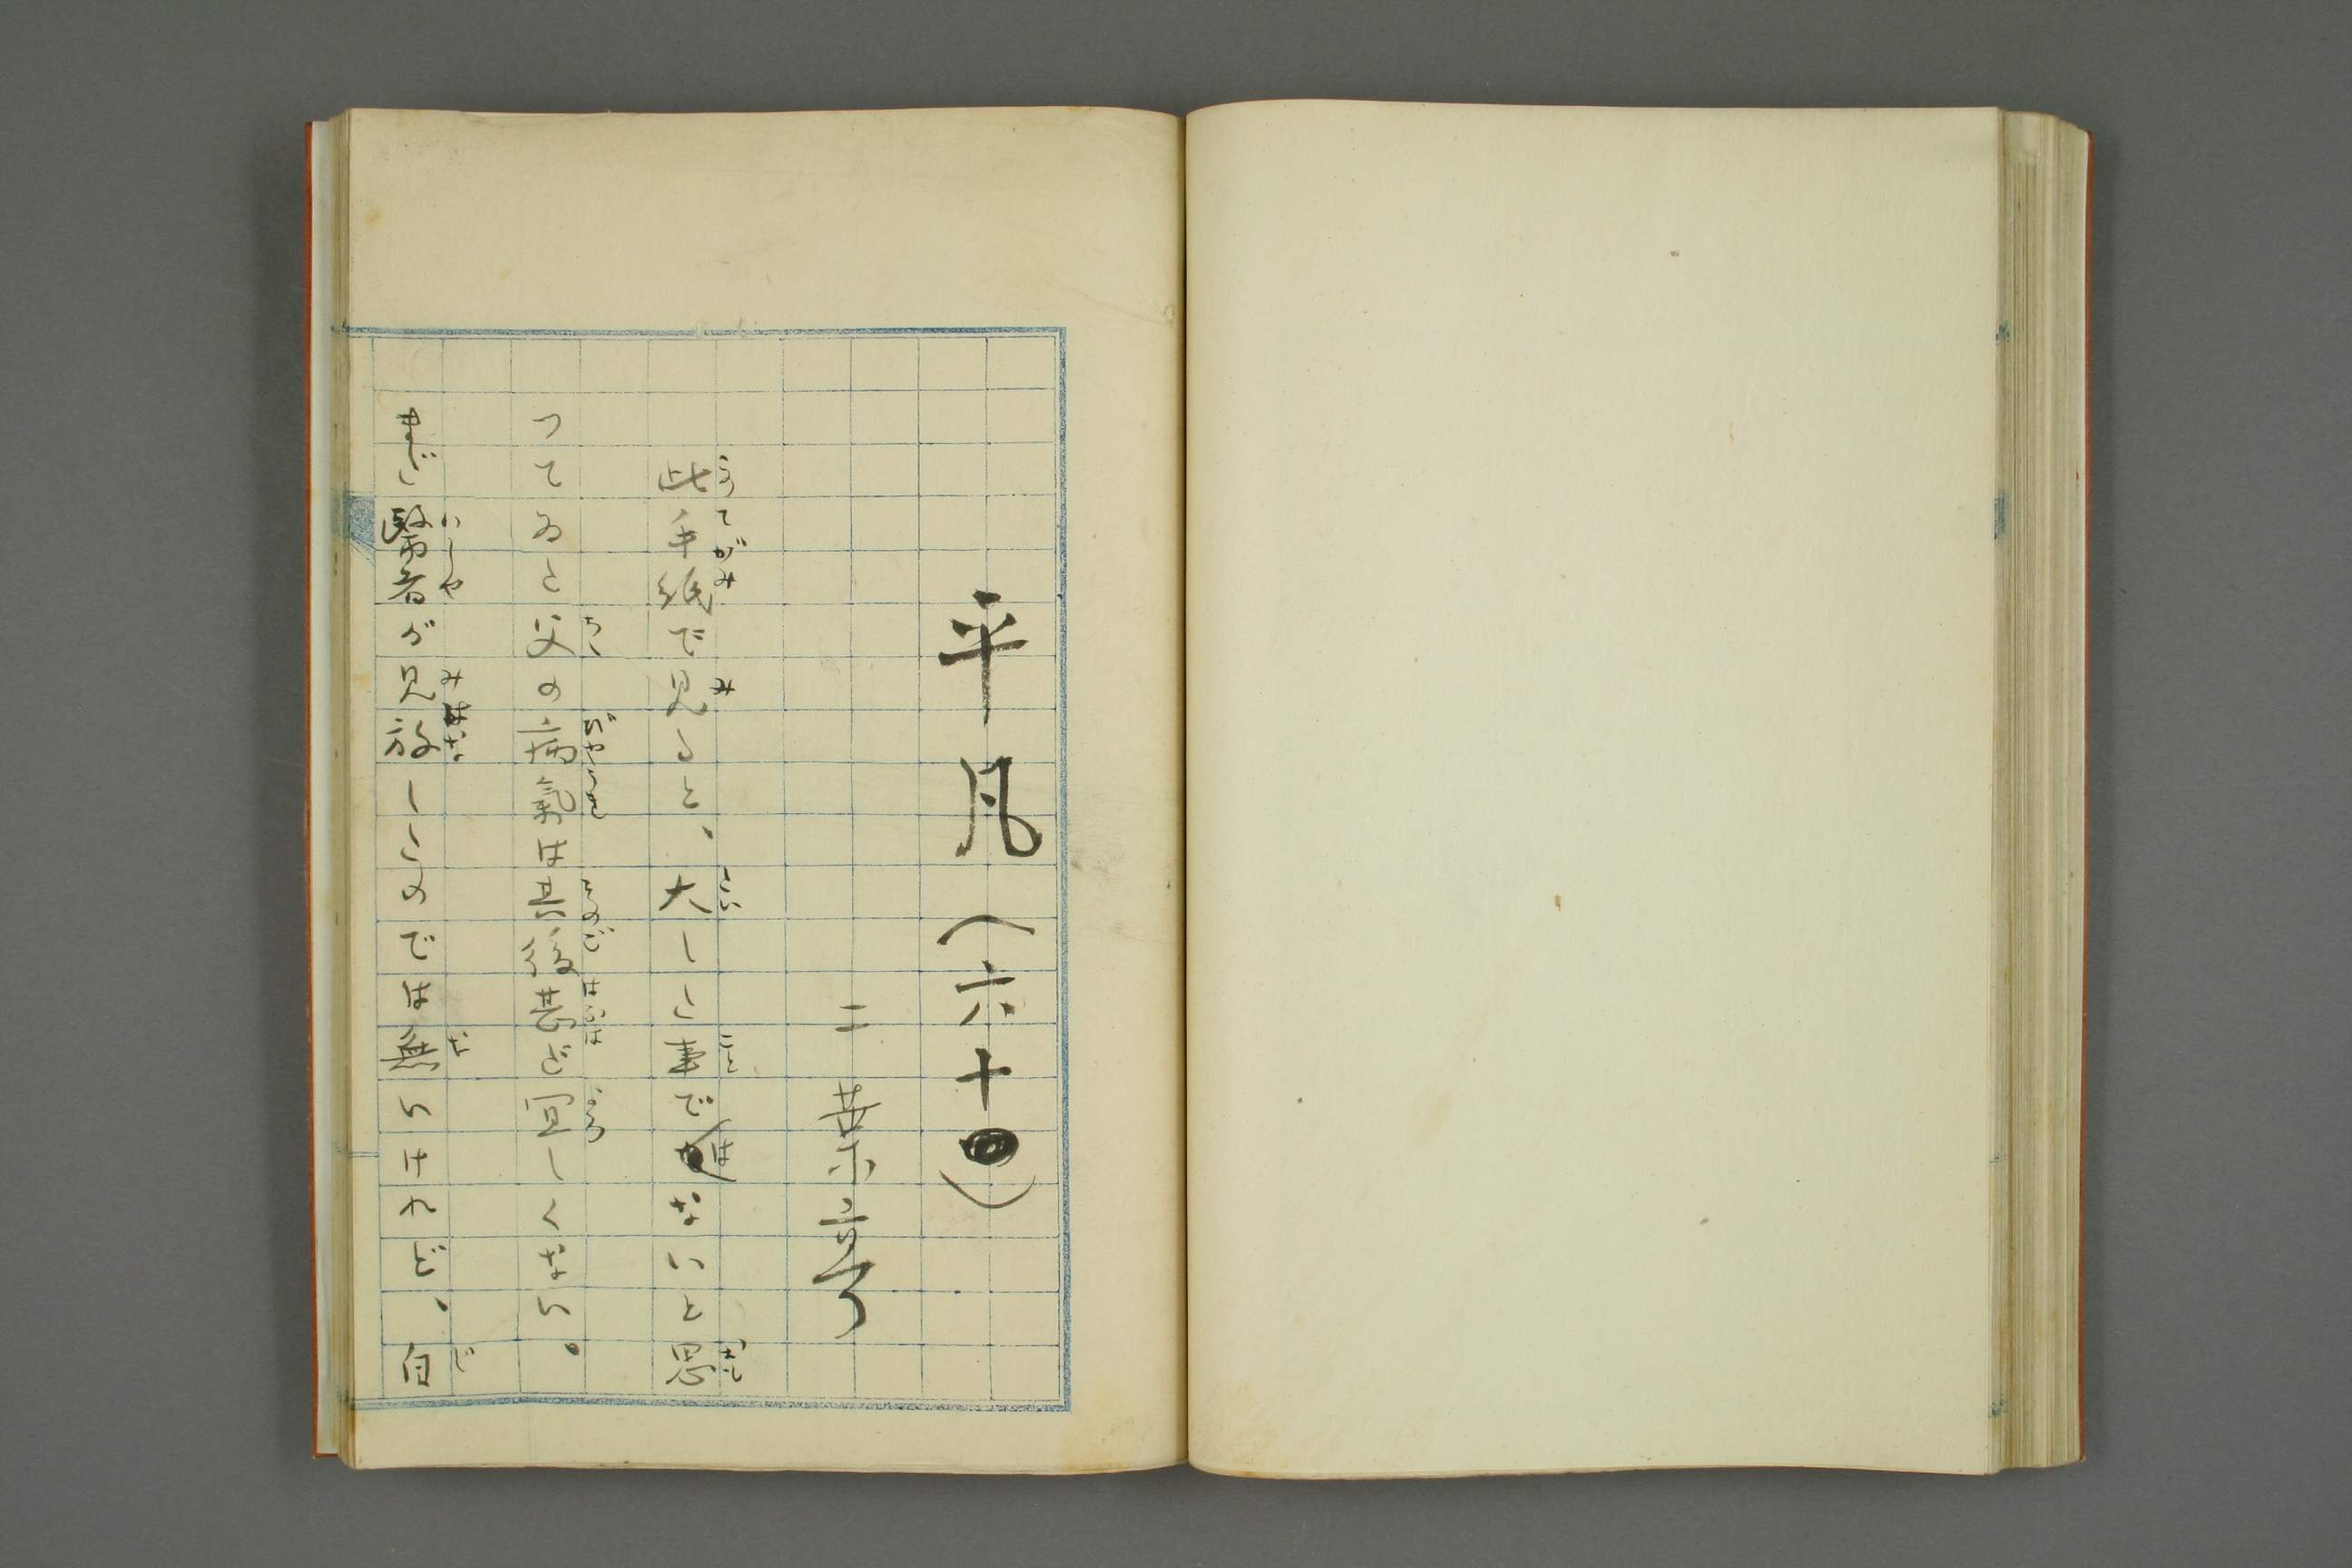 平凡(六十)
二葉亭
此手紙で見ると、大した事ではないと思
つてゐたに父の病氣は其後甚だ宜しくない。
まだ醫者が見放したのでは無いけれど、自